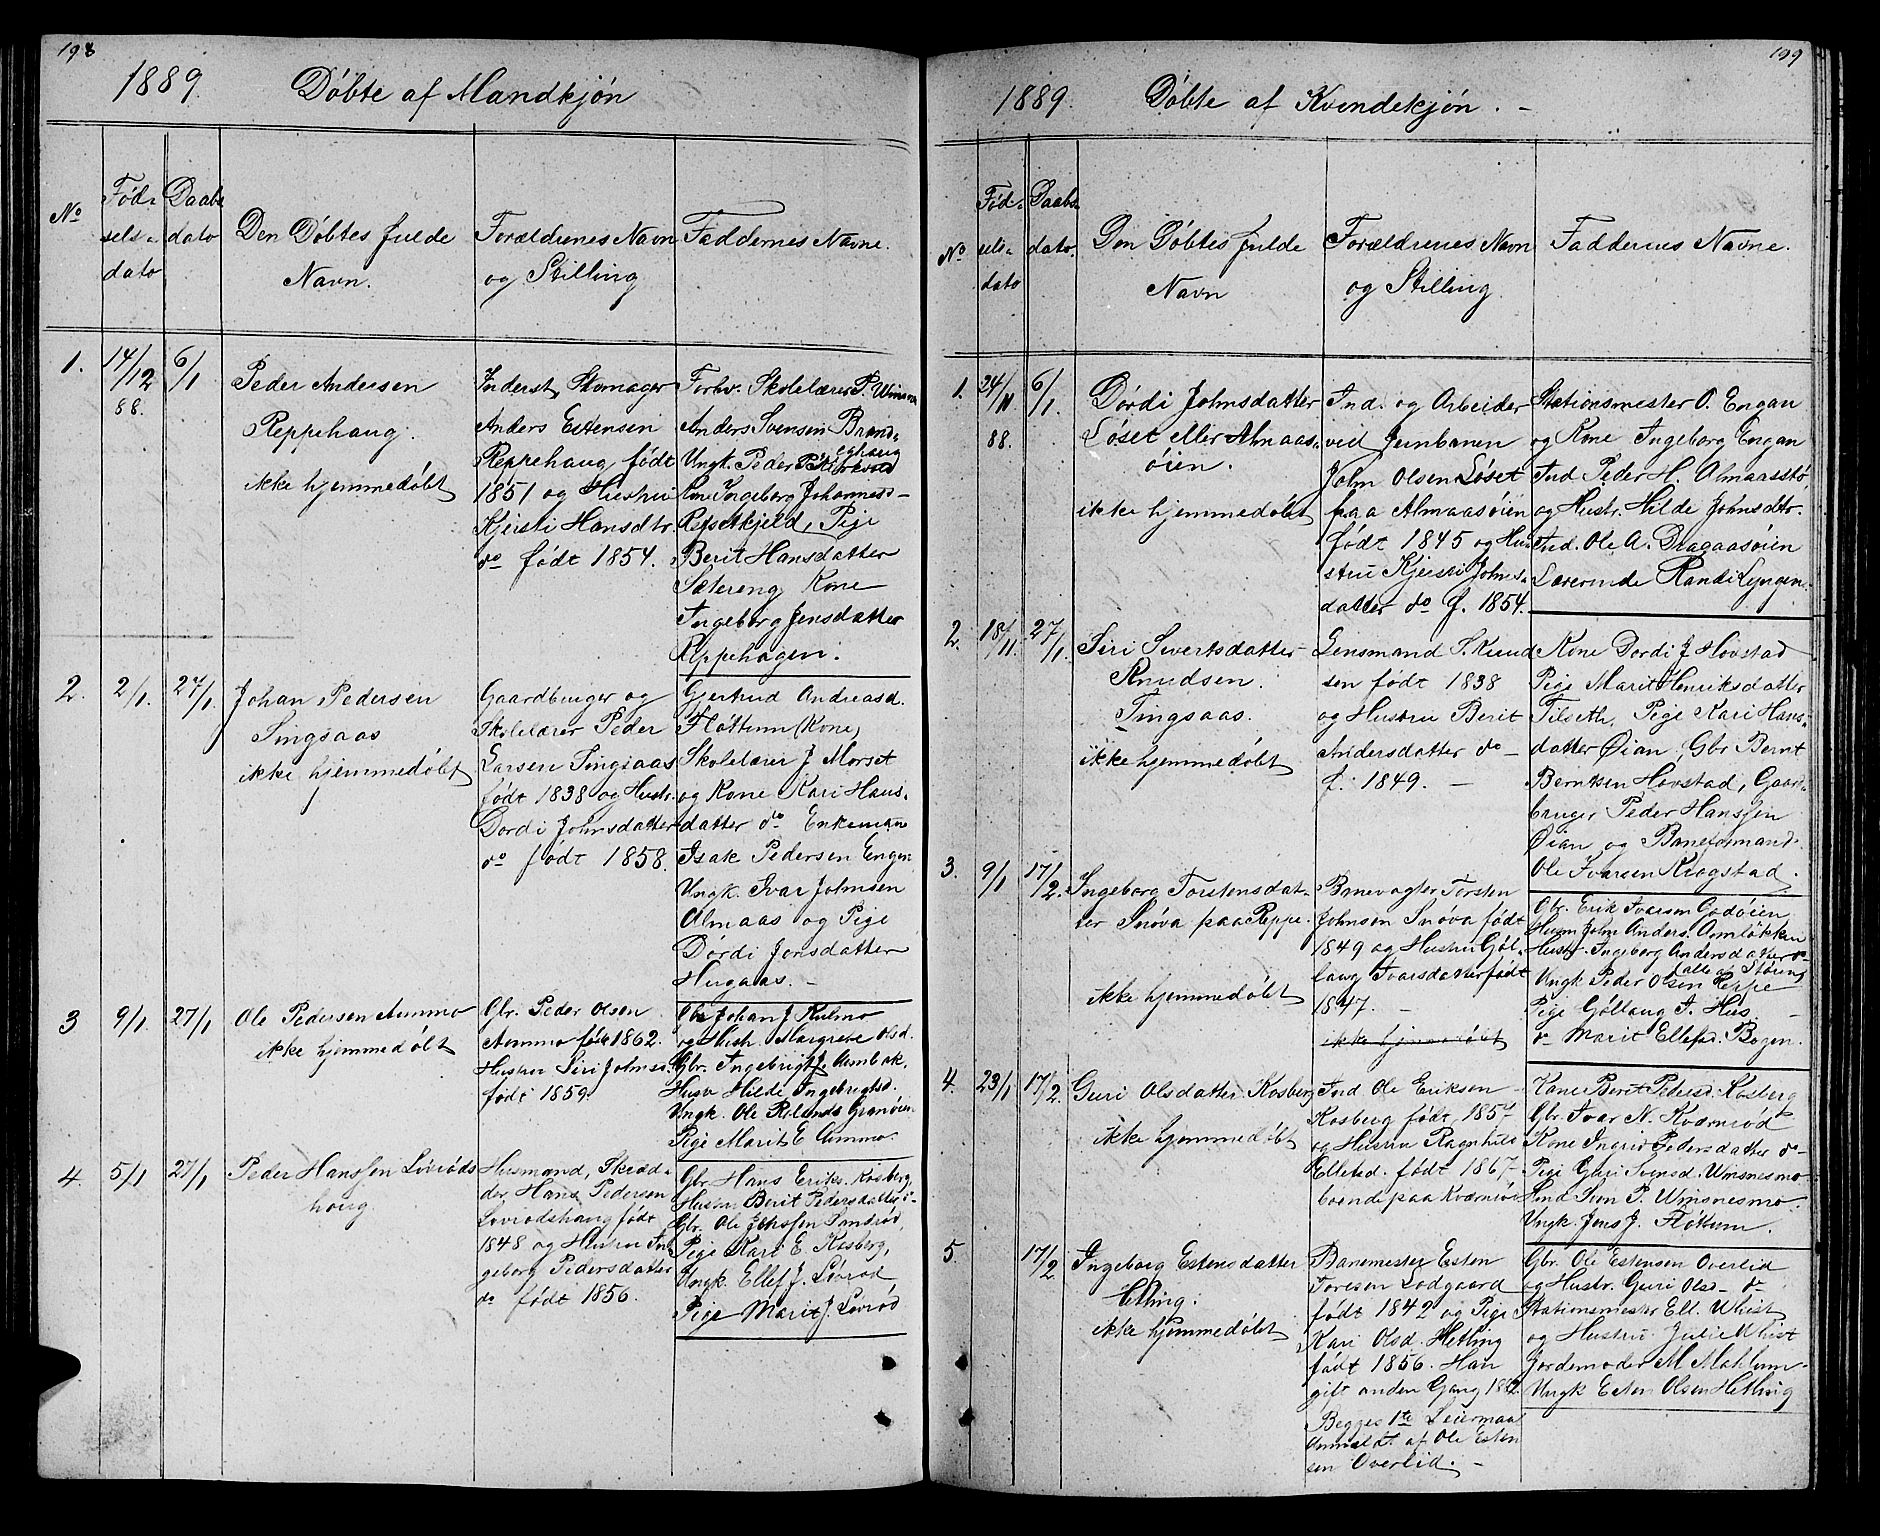 198
1889. Døbte af Mandkjøn
No
Fød-
sels-
dato
Daabs
dato
Den Døbtes fulde
Navn.
Forældrenes Navn
og Stilling
Faddernes Navne.
1.
14/12
88.
6/1
Peder Andersen
Reppehaug.
ikke hjemmedøbt
Inderst Skomager
Anders Estensen
Reppehaug født
1851 og Hustru
Kjersti Hansdtr
do født 1854.
Forhv. Skolelærer P.
Anders Svensen
Ungk. Peder
Ingeborg Johannesd-
Refsetkjeld, Pige
Berit Hansdatter
Sætereng Kone
Ingeborg Jensdatter
Reppehagen.
2.
2/1
27/1
Johan Pedersen
Singsaas
ikke hjemmedøbt
Gaardbruger og
Skolelærer Peder
Larsen Singsaas
født 1838 og Hustr.
Dordi Johnsdatter
do født 1858.
Gjertrud Andreasd.
Fløttum (Kone)
Skolelærer J Morset
og Kone Kari Hans-
datter do Enkemann
Isak Pedersen Engen
Ungk. Ivar Johnsen
Almaas og Pige
Dørdi Jonsdatter
Haugaas. -
3
9/1
27/1
Ole Pedersen Aummo
ikke hjemmedøbt
Gbr. Peder Olsen
Aummo født 1862.
Hustru Siri Johnsd.
født 1859.
Gbr Johan J Kulmo
og Hustr. Margrete Olsd.
Gbr. Ingebrigt J. Aunbak.
Hustr Hilde Ingebrigtsd.
Ungk. Ole Granøien
Pige Marit E Aummo.
4.
5/1
27/1
Peder Hanssen Løvrøds
houg
Husmand, Skræd-
der Hans Pedersen
Løvrødshaug født
1848 og Hustru In
geborg Pedersdatter
do født 1856.
Gbr. Hans Eriks. Kosberg,
Hustru Berit Pedersdatter do
Gbr. Ole Johssen
Pige Kari E. Kosberg,
Ungk. Ellef J. Løvrød
Pige Marit J. Løvrød
199
1889. Døbte af Kvindekjøn. -
No
Fød-
sels-
dato
Daabs-
dato.
Den Døbtes fulde
Navn
Forældrenes Navn
og Stilling.
Faddernes Navne.
1.
24/11
88.
6/1.
Dørdi Johnsdatter
Løset eller Almaas-
øien.
ikke hjemmedøbt
Ind. og Arbeider
ved Jernbanen
John Olsen Løset
paa Almaasøien
født 1845 og Hu-
stru Kjersti Johns-
datter do f. 1854.
Stationsmester O. Engan
og Kone Ingeborg Engan
Ind Peder H. Almaasstø
og Hustr. Hilde Johnsdtr.
Ind. Ole A. Dragaasøien
Lærerinde Randi Lyngen.
2.
18/11
27/1.
Siri Sivertsdatter
Knudsen.
Tingsaas.
ikke hjemmedøbt
Lensmand S. Knud
sen født 1838
og Hustru Berit
Andersdatter do -
f. 1849. -
Kone Dordi J Hovstad
Pige Marit Henriksdatter
Tilseth, Pige Kari Hans-
datter Øian, Gbr Bernt
Berntsen Hovstad, Gaard-
bruger Peder Hanssen
Øian og Baneformand.
Ole Ivarsen Krogstad.
3.
9/1
17/2.
Ingeborg Torstensdat-
ter Snøva paa Reppe.
ikke hjemmedøbt
Banevogter Torsten
Johnsen Snøva født
1849 og Hustru Gøl-
laug Ivarsdatter født
1847. -
ikke hjemmedøbt
Gbr. Erik Ivarsen Godøien
Husm John Anders. Aunløkken
Hustr. Ingeborg Andersdatter do
alle af Støren
Ungk Peder Olsen Reppe
Pige Gøllaug T. Hus.
do Marit Ellefsd. Bogen.
4.
23/1
17/2.
Guri Olsdatter Kosberg
ikke hjemmedøbt
Ind Ole Eriksen
Kosberg født 1857
og Hustru Ragnhild
Ellefsd. født 1867
boende paa Kværnrød
Kone Berit Pedersd. Kosberg
Gbr Ivar N. Kværnrød
Kone Ingrid Pedersdatter do
Pige Guri Svensd. Umsnesmo
Ind Sven P. Umsnesmo.
Ungk. Jens J. Fløttum.
5.
17/2
Ingeborg Estensdatter
Hetling.
ikke hjemmedøbt
Banemester Esten
Toresen Lodgaard
født 1842 og Pige
Kari Olsd. Hetling
født 1856. Han
gift anden Gang 1862.
Begges 1te Leiermaal
anmeldt af Ole Esten
sen Overlid. -
Gbr. Ole Estensen Overlid
og Hustr. Guri Olsd- do
Stationsmester Ell. Whist
og Hustru Julie Whist
Jordemoder M Mahlum
Ungk Esten Olsen Hetling